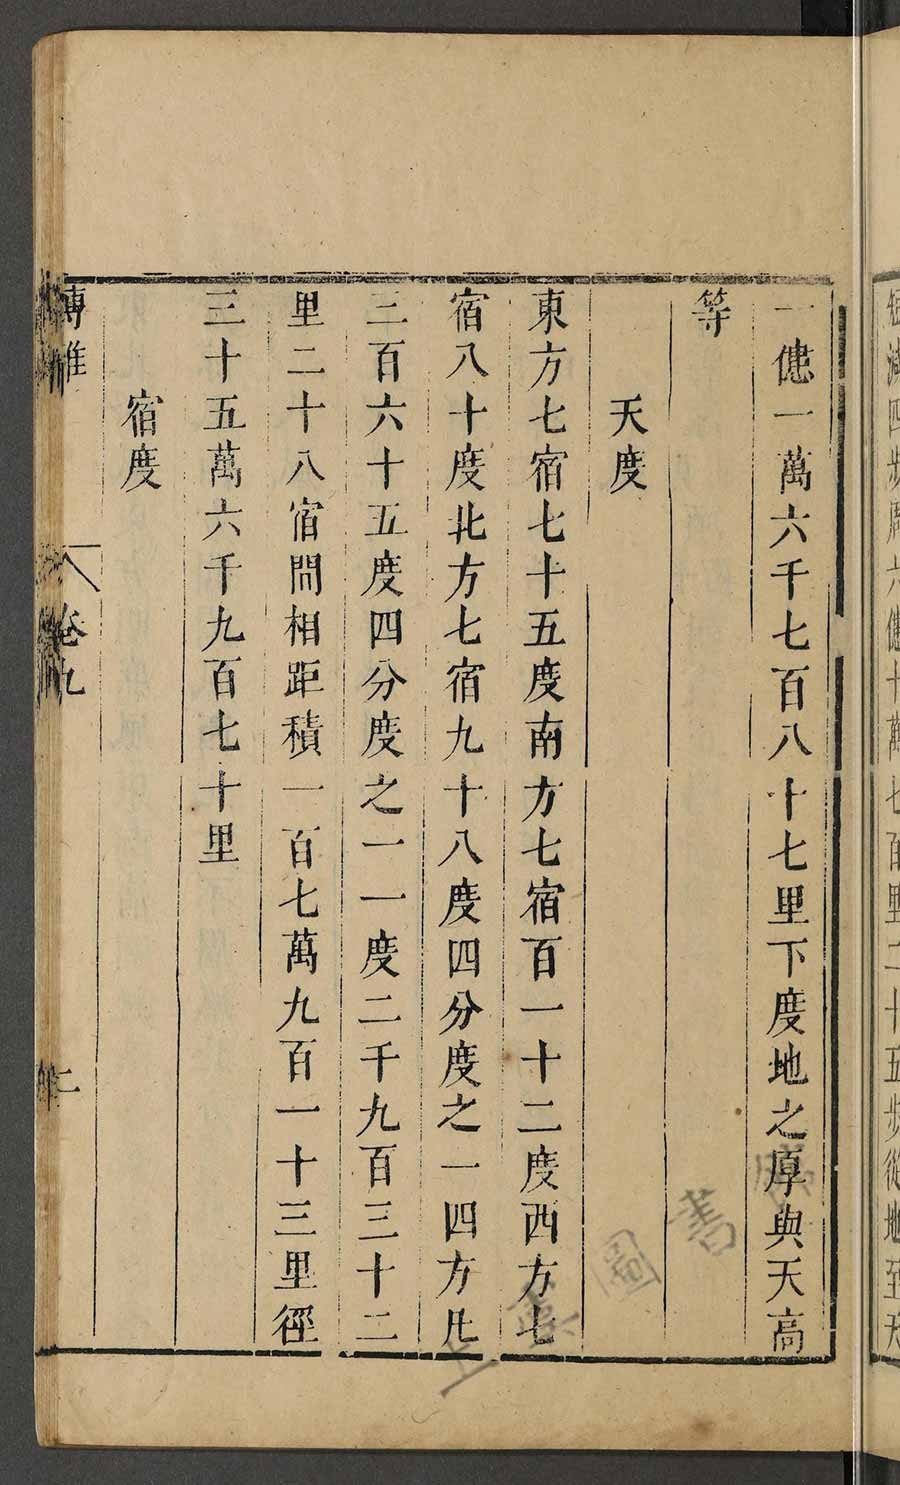 短減四步周六億十萬七百里二十五步從地至天
一億一萬六千七百八十七里下度地之厚與天高
等
天度
東方七宿七十五度南方七宿百一十二度西方七
宿八十度北方七宿九十八度四分度之一四方凡
三百六十五度四分度之一一度二千九百三十二
里二十八宿間相距積一百七萬九百一十三里徑
三十五萬六千九百七十里
宿度
博雅
卷九
二
上 圖書